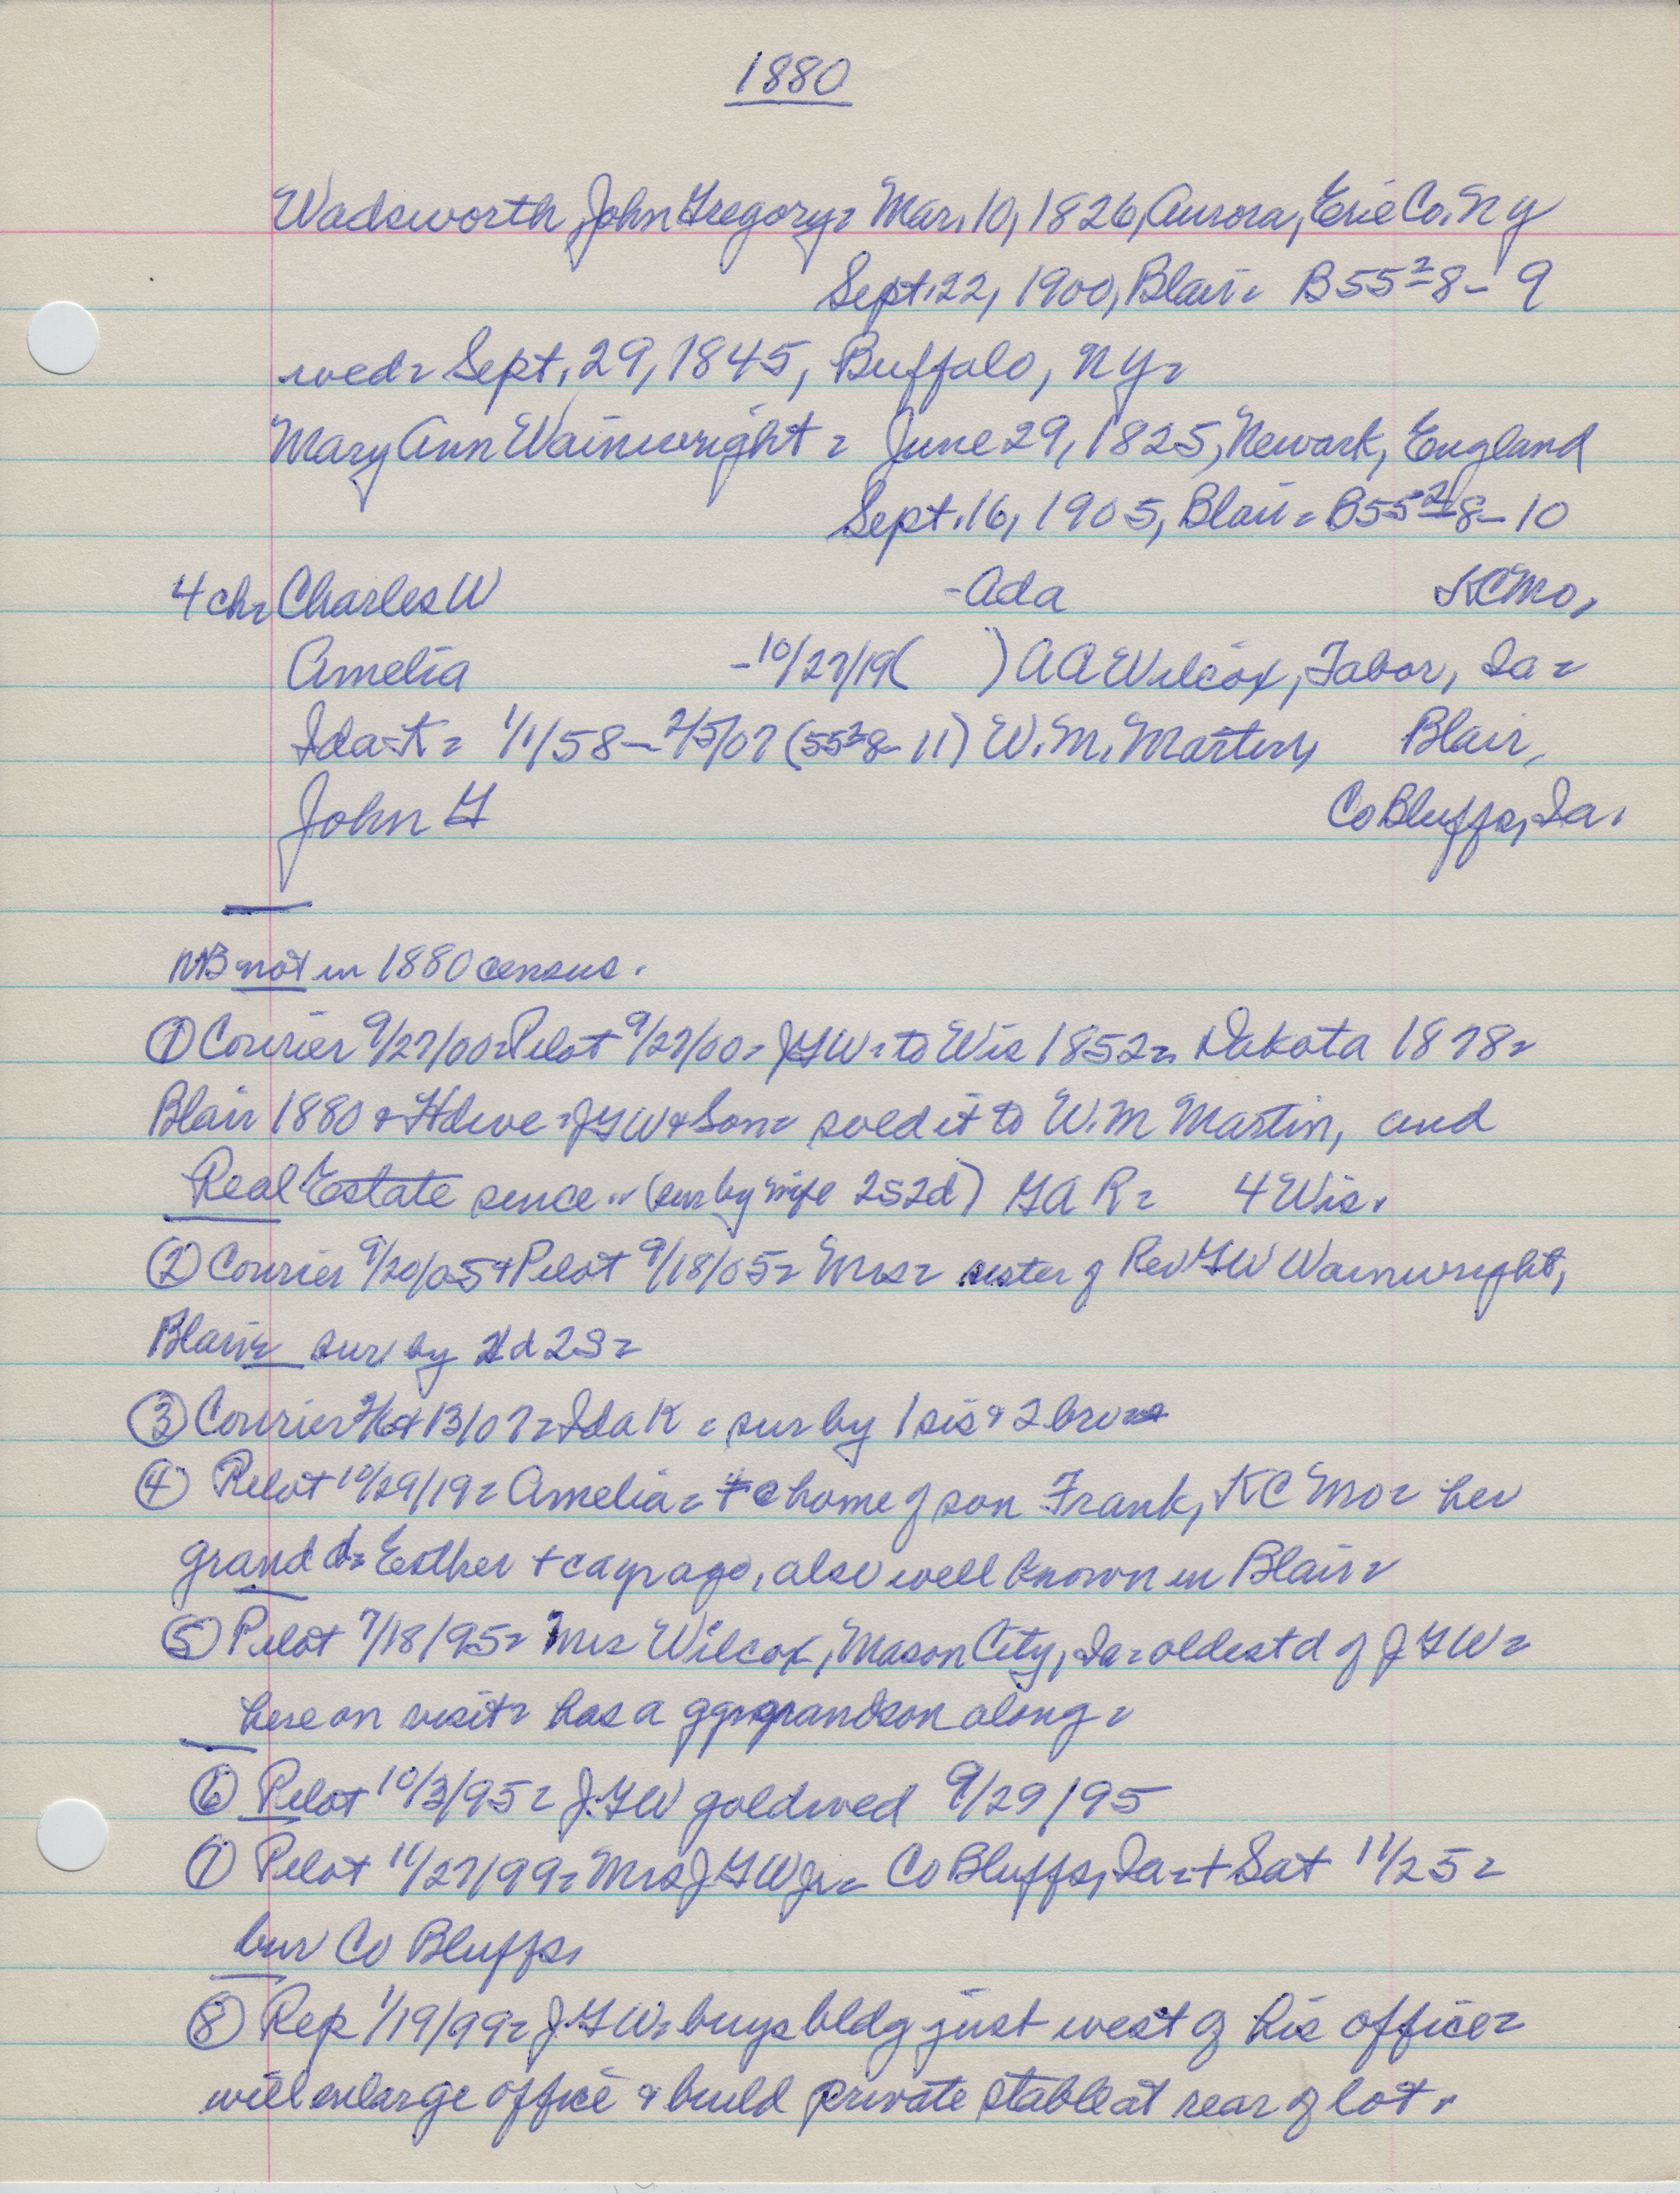 1880
Wadsworth, John Gregory = Mar. 10, 1826, Aurora, Erie Co. NY
Sept. 22, 1900, Blair = B 55 2 8 - 9
wed = Sept. 29, 1845, Buffalo, NY =
Mary Ann Wainwright = June 29, 1825, Newark, England
Sept. 16, 1905, Blair = B 55 2 8 - 10
4 ch = Charles W - Ada KC Mo,
Amelia - 10/27/19 ( ) AA Wilcox, Tabor, Ia =
Ida K = 1/1/58 - 2/5/07 (55 2 8 - 11) W. M. Martin, Blair,
John G Co Bluffs, Ia.
NB not in 1880 census.
① Courier 9/27/00 = Pilot 9/27/00 = JGW = to Wis 1852 = Dakota 1878 =
Blair 1880 & Hdwe = JGW & Son = sold it to W. M Martin, and
Real Estate since .. (sur by wife 2s 2d) GAR = 4 Wis.
② Courier 9/20/05 & Pilot 9/18/05 = Mrs = sister of Rev GW Wainwright,
Blair = sur by 2d 2S =
③ Courier 2/6 & 13/07 = Ida K = sur by 1 sis & 2 bro
④ Pilot 10/29/19 = Amelia = + @ home of son Frank, KC Mo = her
grand d = Esther + ca yr ago, also well known in Blair =
⑤ Pilot 7/18/95 = Mrs Wilcox, Mason City, Ia = oldest d of JGW =
here on visit = has a grandson along =
⑥ Pilot 10/3/95 = J.GW gold wed 9/29/95
⑦ Pilot 11/27/99 = Mrs JGW Jr = Co Bluffs, Ia = + Sat 11/25 =
bur Co Bluffs,
⑧ Rep 1/19/99 = J.GW = buys bldg just west of his office =
will enlarge office & build private stable at rear of lot.